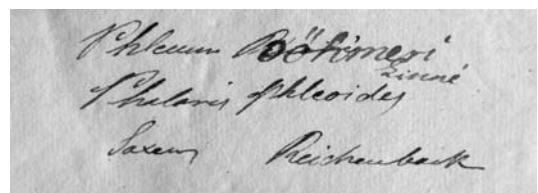 Phleum Böhmeri
Linné
Phalaris phleoides
Saxen Reichenback